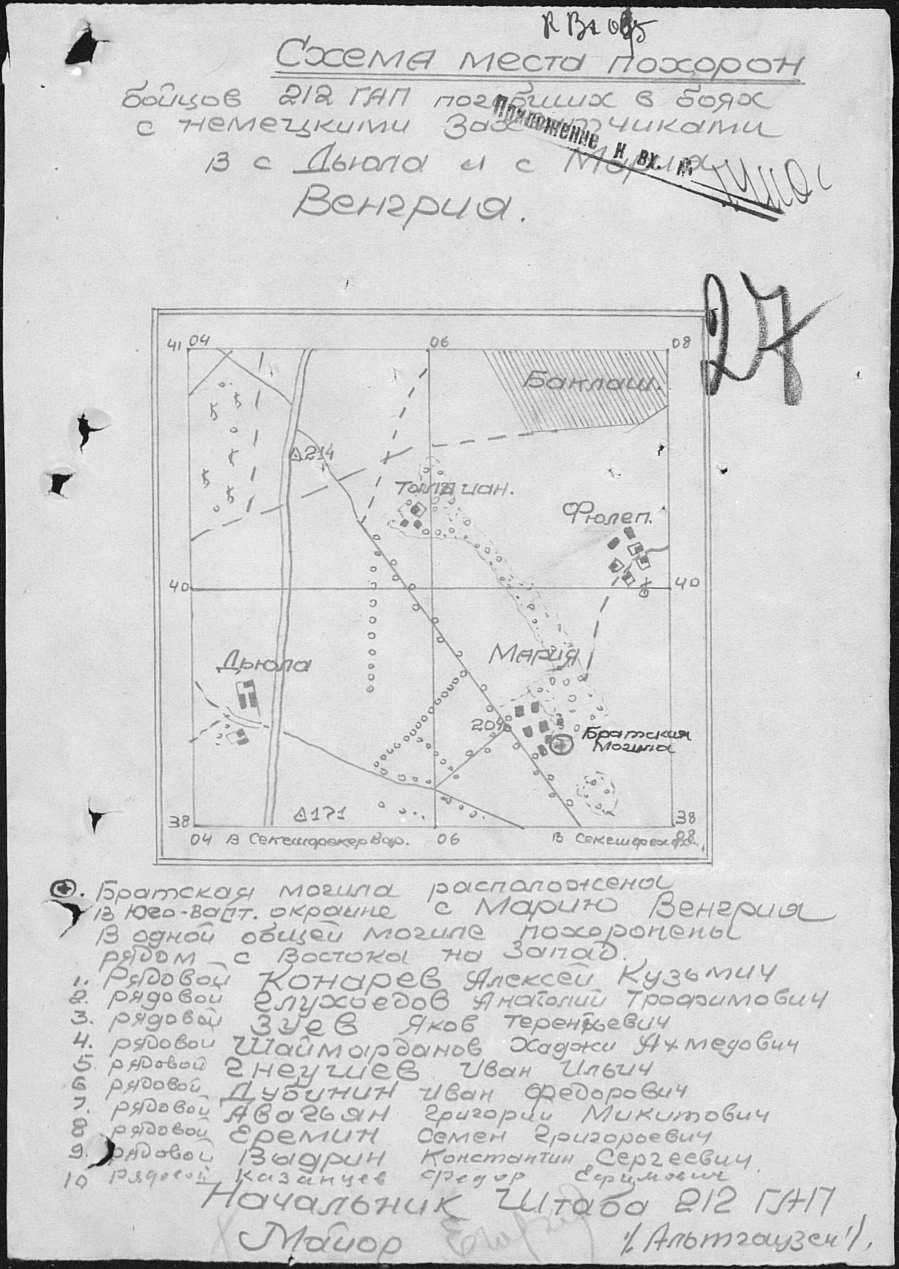 Схема места похорон
бойцов 212 ГАП погибших в боях
с немецкими Захватчиками
В с Дьюла и с Мария
Венгрия.
Приложение к вх. №
27
41 04
06
08
Баклаш.
△214
Фюлеп.
40
40
Дьюла
Мария
209
Братская
могила
△171
38
38
04 В Секешфехервар.
06
08
Братская могила расположена
в Юго-Вапт. окраине с Марию Венгрия
В одной общей могиле похоронены
рядом с Востока на Запад.
1. Рядовой Конарев Алексей Кузьмич
2. рядовой Глухоедов Анатолий Трофимович
3. рядовой Зуев Яков Терентьевич
4. рядовой Шаймарданов Хаджи Ахмедович
5 рядовой Гнеушев Иван Ильич
6 рядовой Дубинин Иван Федорович
7. рядовой Авагьян Григорий Микитович
8 рядовой Еремин Семен Григорьевич
9. рядовой Выдрин Константин Сергеевич
10 рядовой Казанцев Федор Ефимович
Начальник Штаба 212 ГАП
Майор /Альтгаузен/.